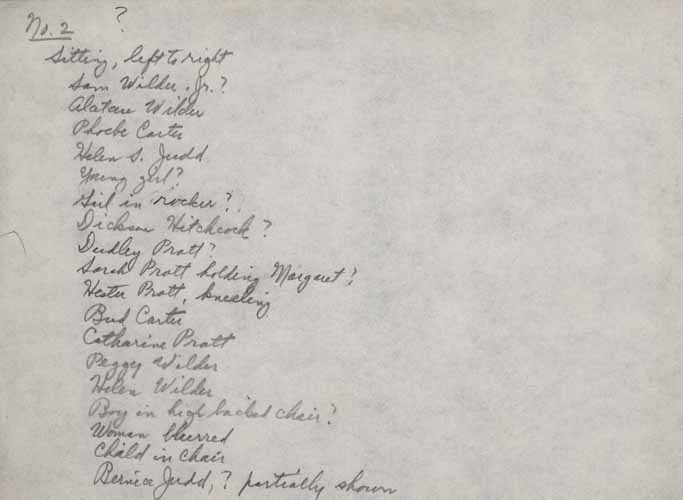 No. 2 ?
Sitting, left to right
Sam Wilder, Jr.?
Alatau Wilder
Phoebe Carter
Helen S. Judd
Young girl?
Girl in rocker?
Dickson Hitchcock?
Dudley Pratt?
Sarah Pratt holding Margaret?
Hester Pratt, kneeling
Bud Carter
Catharine Pratt
Peggy Wilder
Helen Wilder
Boy in high backed chair?
Woman blurred
Child in chair
Bernice Judd, ? partially shown